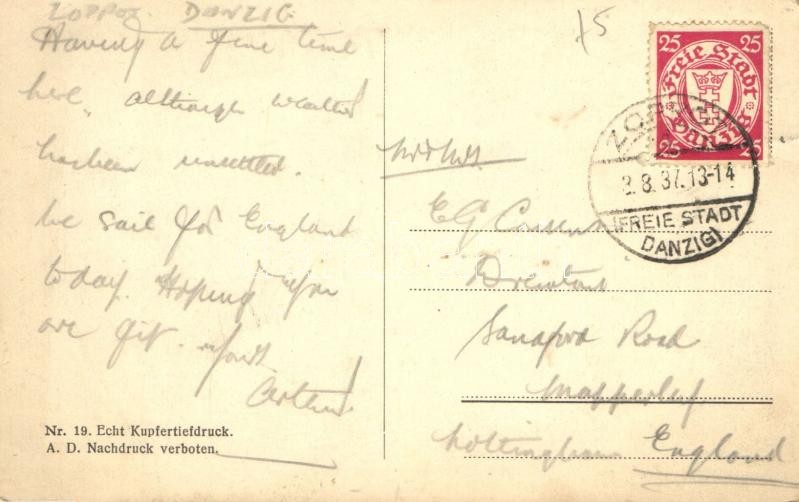 Zoppot DANZIG.
Having a fine time
here, although weather
has been unsettled.
We sail for England
today. Hoping you
are fit. Yours
Arthur.
Nr. 19. Echt Kupfertiefdruck.
A. D. Nachdruck verboten.
75
25 25
Freie Stadt
Danzig
25 25
ZOPPOT
8.37.13-14
(FREIE STADT
DANZIG)
E G
Sandford Road
Mapperley
Nottingham England